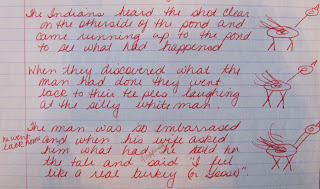 The Indians heard the shot clear
on the otherside of the pond and
came running up to the pond
to see what had happened
When they discovered what the
man had done they went
back to their tee pees laughing
at the silly white man
The man was so embarrased
he went back home and when his wife asked
him what had he told her
the tale and said "I feel
like a real turkey (or Goose)".